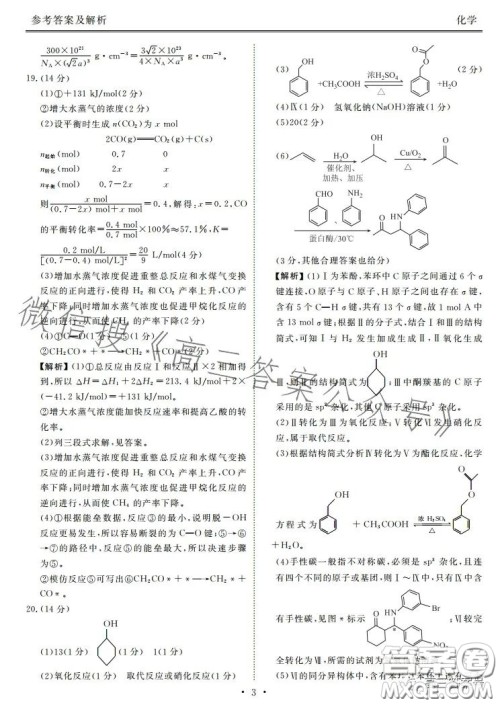 参考答案及解析
化学
300×10²¹/(N_A×(√2a)³) g·cm⁻³=3√2×10²³/(4×N_A×a³) g·cm⁻³。
19.(14分)
(1)①+131 kJ/mol(2分)
②增大水蒸气的浓度(2分)
(2)设平衡时生成n(CO₂)为x mol
2CO(g)══CO₂(g)+C(s)
n起始(mol) 0.7 0
n转化(mol) 2x x
n平衡(mol) 0.7-2x x
则 x mol/((0.7-2x) mol+x mol)=0.4,解得:x=0.2,CO
的平衡转化率=0.4/0.7 mol×100%≈57.1%,K=
0.2 mol/L/[(0.7-0.4) mol/L]²=20/9 L/mol(4分)
(3)增加水蒸气浓度促进重整总反应和水煤气变换
反应的正向进行,使得H₂和CO₂产率上升,CO产
率下降;同时增加水蒸气浓度也促进甲烷化反应的
逆向进行,从而使CH₄的产率下降。(2分)
(4)①⑤(2分)
②CH₂CO*+*→CH₂*+CO*(2分)
【解析】(1)①总反应由反应Ⅰ与反应Ⅱ×2相加得
到,所以ΔH=ΔH₁+2ΔH₂=213.4 kJ/mol+2×
(-41.2 kJ/mol)=+131 kJ/mol。
②增大水蒸气浓度能加快反应速率和提高乙酸的转
化率。
(2)列三段式求解,见答案。
(3)增加水蒸气浓度促进重整总反应和水煤气变换
反应的正向进行,使得H₂和CO₂产率上升,CO产
率下降;同时增加水蒸气浓度也促进甲烷化反应的
逆向进行,从而使CH₄的产率下降。
(4)①根据能垒数据,反应③的最小,说明脱—OH
反应更易发生,所以反应初始阶段,反应③为主要反
应,该反应断裂的共价键为C—O键;⑤→⑥
→⑦的路径中,反应⑤的能垒最大,所以决速步骤为
反应⑤。
②模仿反应④可写出CH₂CO*+*→CH₂*+
CO*。
20.(14分)
(1)13(1分) OH (1分)
(2)氧化反应(1分) 取代反应或硝化反应(1分)
(3) OH +CH₃COOH 浓H₂SO₄ △ O +H₂O (2分)
(4)Ⅸ(1分) 氢氧化钠(NaOH)溶液(1分)
(5)20(2分)
(6) H₂O 催化剂、加热、加压 OH Cu/O₂ △ O
CHO NH₂ 蛋白酶/30℃ O HN
(3分,其他合理答案也给分)
【解析】(1)Ⅰ为苯酚,苯环中C原子之间通过6个σ
键连接,O原子与C原子、H原子之间也存在σ键,
含有5个C—H键,共用13个σ键,故1 mol A中
含13 mol σ键。根据Ⅱ的分子式,结合Ⅰ和Ⅲ的结
构式,可知Ⅰ与H₂发生加成生成Ⅱ,Ⅱ氧化生成
Ⅲ,则Ⅱ的结构简式为 OH ;Ⅲ中酮羰基的C原子
采用的是sp²杂化,其他C原子采用sp³杂化。
(2)Ⅱ转化为Ⅲ为氧化反应,Ⅴ转化Ⅵ发生硝化反
应,属于取代反应。
(3)根据结构简式分析Ⅳ转化为Ⅴ为酯化反应,化学
方程式为 OH +CH₃COOH 浓H₂SO₄ △ O
+H₂O。
(4)手性碳一般指不对称碳,即必须是sp³杂化,且连
有四个不同的原子或基团,则Ⅰ～Ⅸ中,只有Ⅸ中含
有手性碳,见图*标示 O HN Br * NO₂ ;Ⅵ较完
全转化为Ⅶ,所需的试剂为
3
微信搜《高三答案公众号》
答案圈